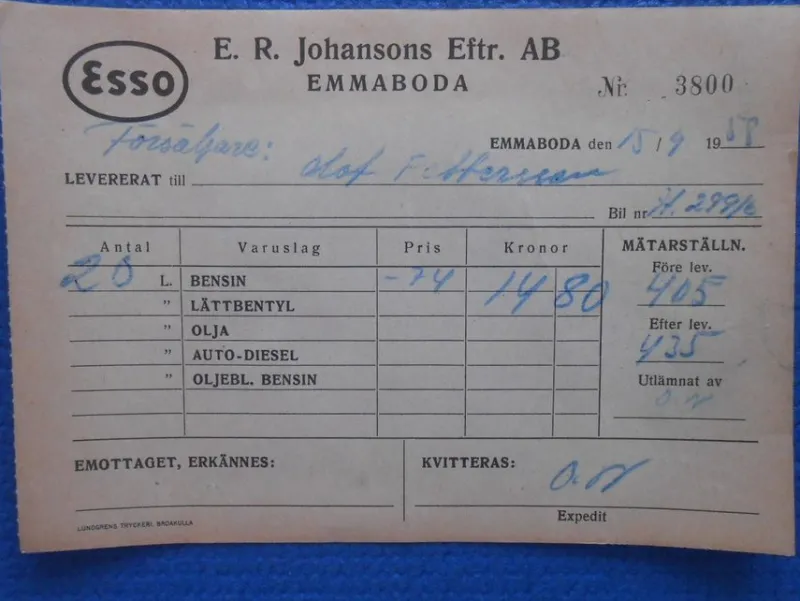 Esso
E. R. Johansons Eftr. AB
EMMABODA
Nr. 3800
Försäljare:
EMMABODA den 15/9 19
LEVERERAT till Olof Petterson
Bil nr H. 299
Antal Varuslag Pris Kronor MÄTARSTÄLLN.
Före lev.
20 L. BENSIN -74 14 80 405
" LÄTTBENTYL
Efter lev.
" OLJA 435
" AUTO-DIESEL
Utlämnat av
" OLJEBL. BENSIN O.N
EMOTTAGET, ERKÄNNES: KVITTERAS:
O.N
Expedit
LUNDGRENS TRYCKERI, BROAKULLA